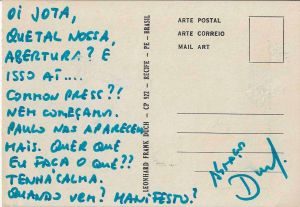 OI JOTA,
QUE TAL NOSSA
ABERTURA? É
ISSO AÍ....
COMMON PRESS?!
NEM COMEÇAMOS.
PAULO NAS APARECEU
MAIS. QUER QUE
EU FAÇA O QUÊ??
TENHA CALMA.
QUANDO VEM? MANIFESTO?
LEONHARD FRANK DUCH - CP 522 - RECIFE - PE - BRASIL
ARTE POSTAL
ARTE CORREIO
MAIL ART
Abraços
Duch.